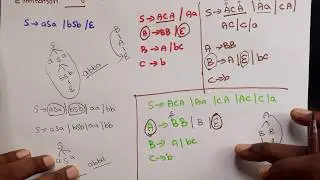 S → aSa | bSb | ε
S
a S a
b S b
ε
abba
S → aSa | bSb | aa | bb
S
a S a
bb
abba
S → ACA | Aa
A → BB | ε
B → A | bc
C → b
B
A
ε
S → ACA | Aa | CA |
AC | C | a
A → BB
B → A | ε | bc
C → b
S → ACA | Aa | CA | AC | C | a
A → BB | B | ε
B → A | bc
C → b